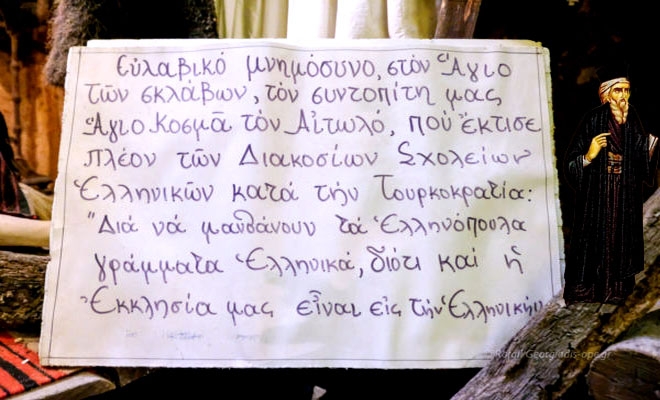 Εὐλαβικό μνημόσυνο, στόν Ἅγιο
τῶν σκλάβων, τόν συντοπίτη μας
Ἅγιο Κοσμᾶ τόν Αἰτωλό, πού ἔκτισε
πλέον τῶν Διακοσίων Σχολείων
Ἑλληνικῶν κατά τήν Τουρκοκρατία:
"Διά νά μανθάνουν τά Ἑλληνόπουλα
γράμματα Ἑλληνικά, διότι καί ἡ
Ἐκκλησία μας εἶναι εἰς τήν Ἑλληνικήν
Georgiadis-ope.gr